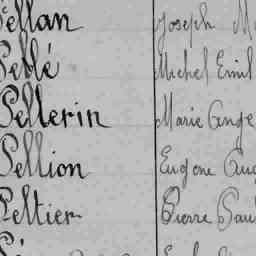 Pellan Joseph
Peblé Michel Emil
Pellerin Marie Ange
Pellion Eugène Aug
Peltier Pierre Paul